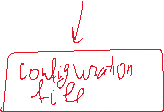 configuration
file